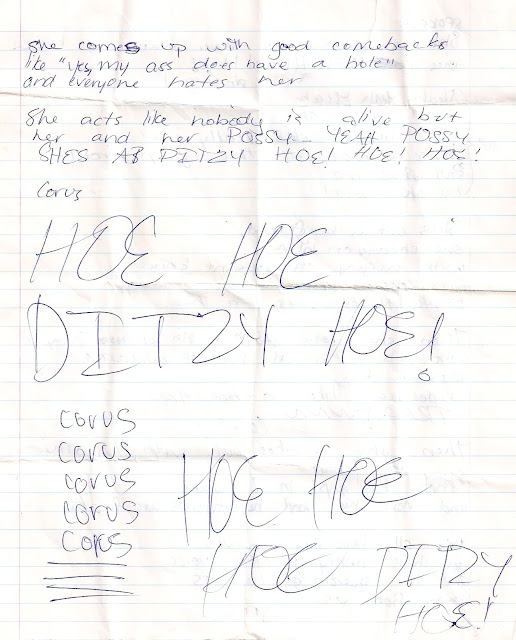 She comes up with good comebacks
like "yes, my ass does have a hole"
and everyone hates her
She acts like nobody is alive but
her and her POSSY... YEAH POSSY
SHES AB DITZY HOE! HOE! HOE!
Corus
HOE HOE
DITZY HOE!
corus
corus
corus
corus
corus
HOE HOE
HOE DITZY
HOE!